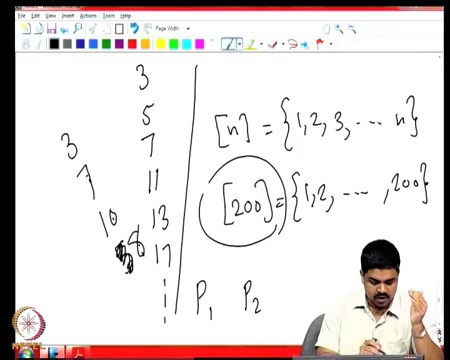 File Edit View Insert Actions Tools Help
Page Width
3
5
7
11
13
17
3
7
10
8
[n] = {1, 2, 3, ---- n}
[200] = {1, 2, ---- , 200}
P1 P2
NPTEL